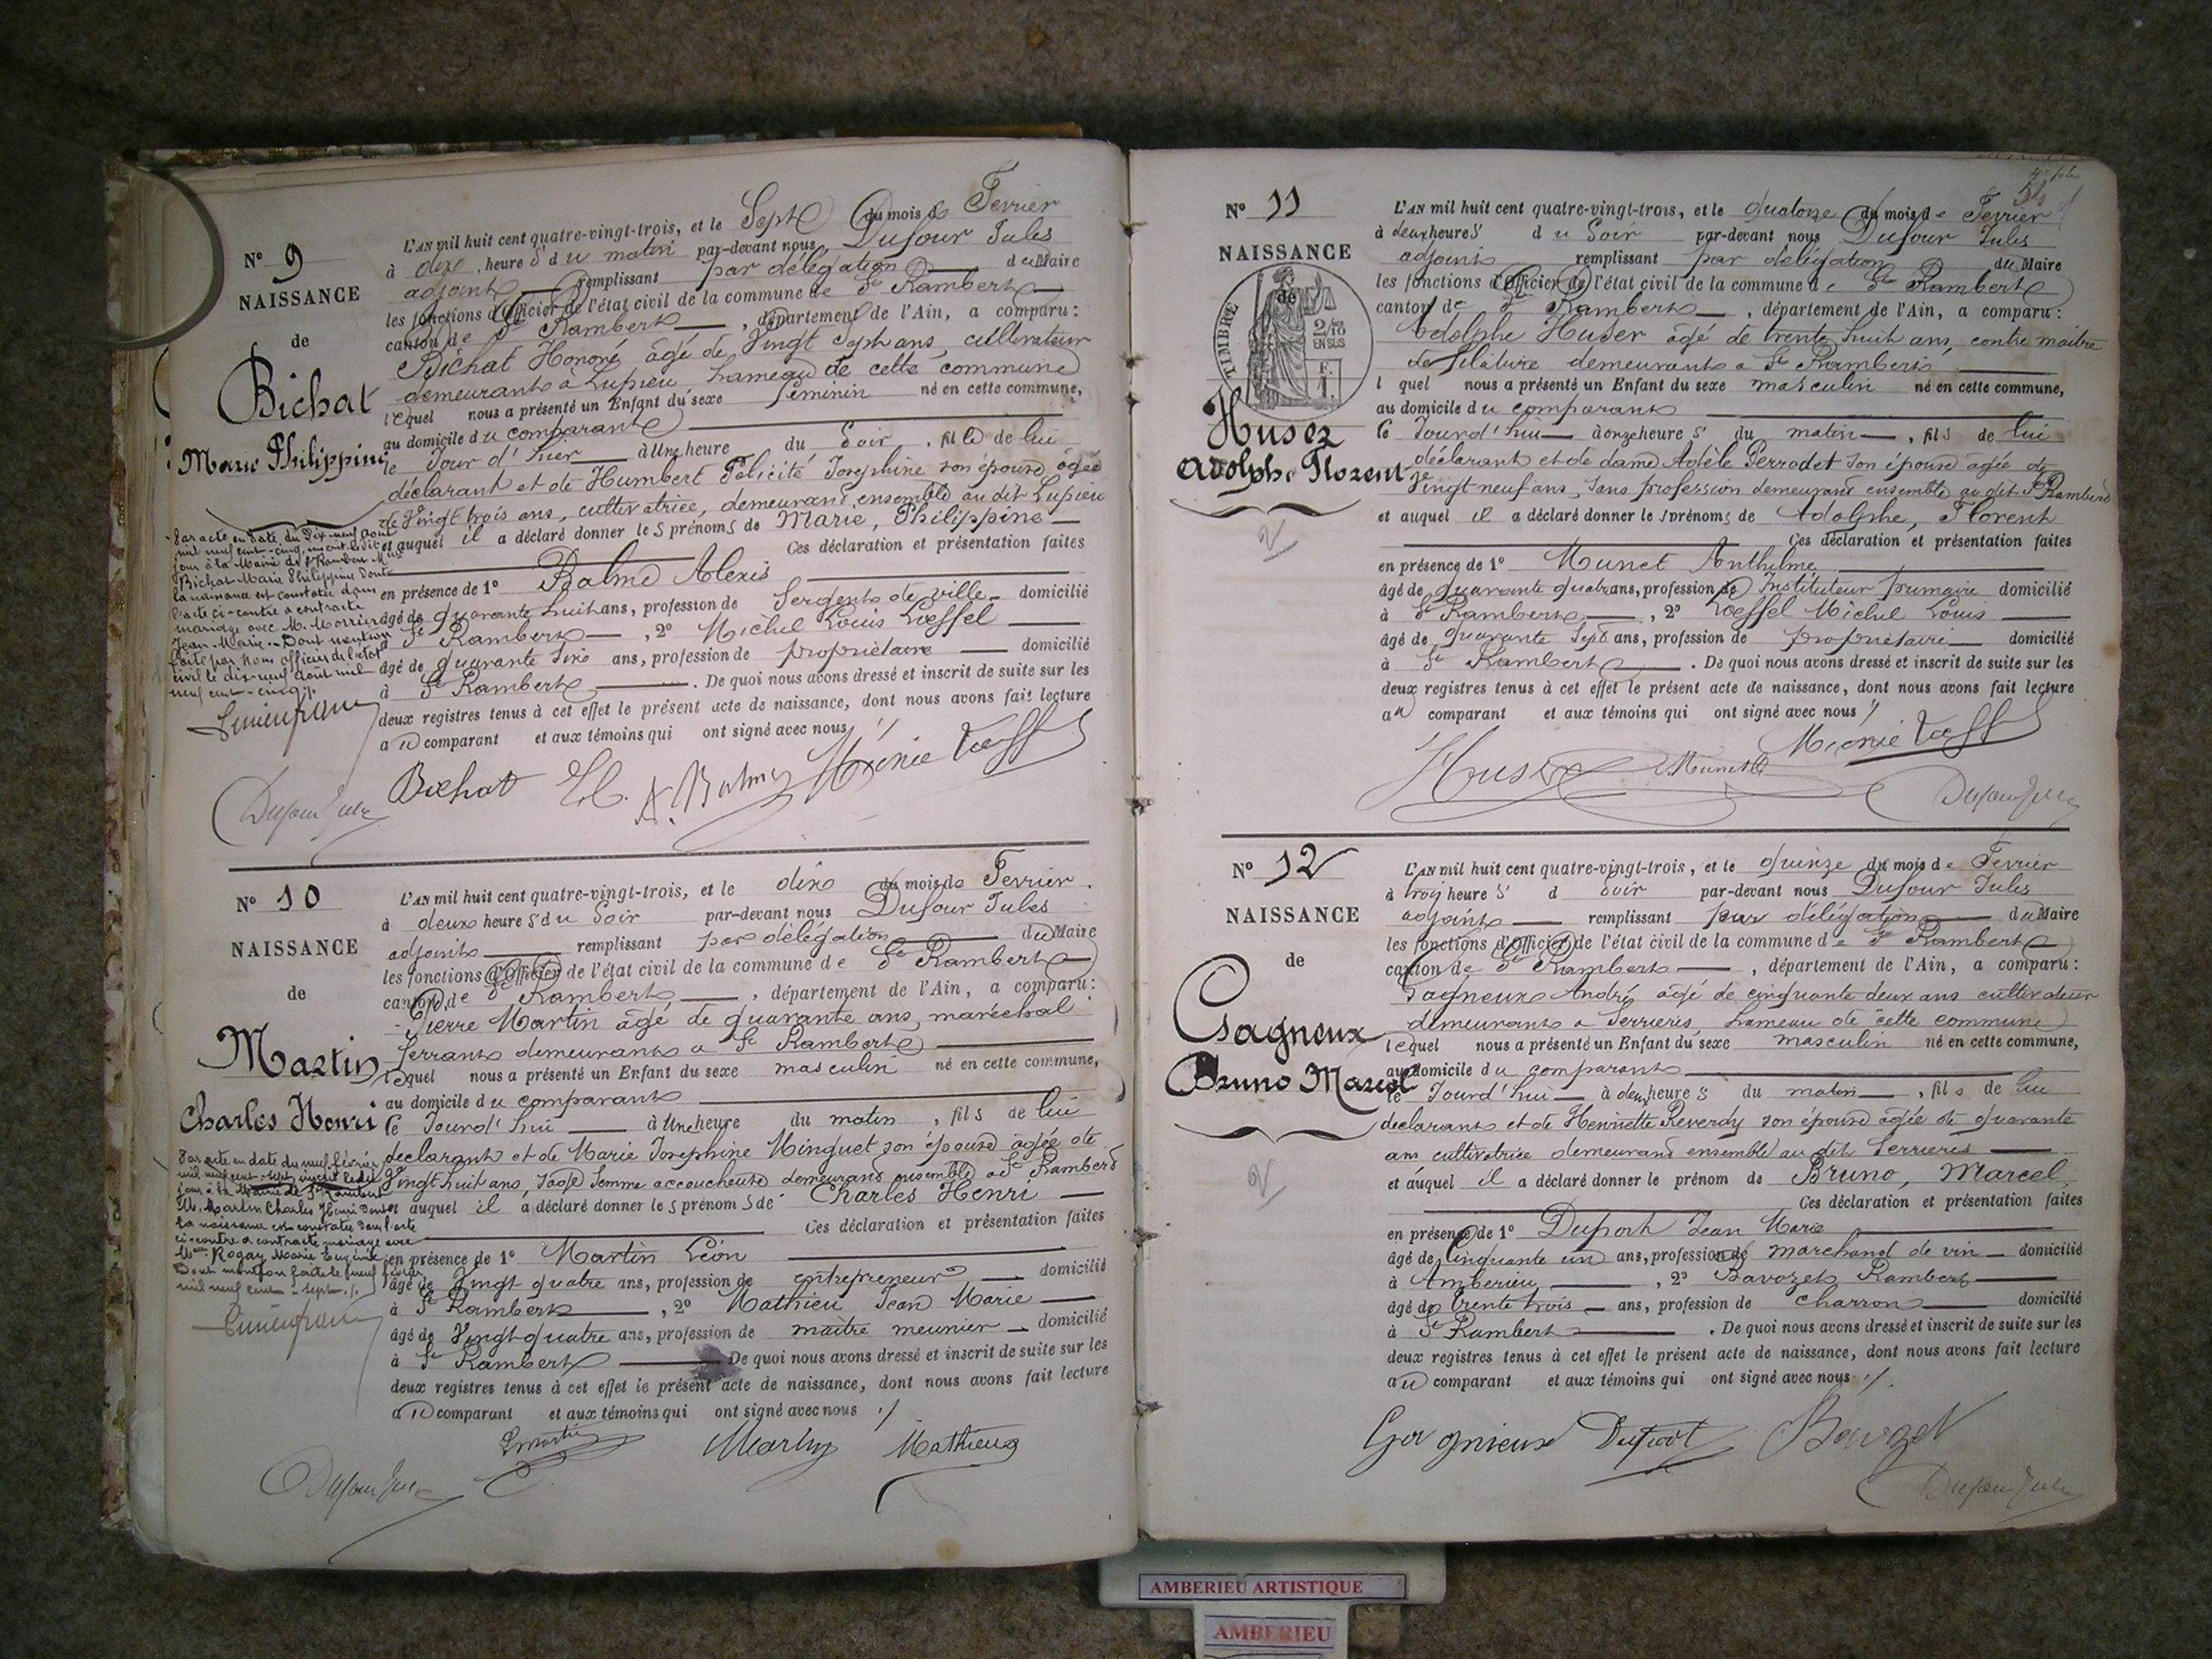 N° 9
NAISSANCE
de
Bichat
Marie Philippine
L'AN mil huit cent quatre-vingt-trois, et le Sept du mois de Fevrier
à dix heures du matin par-devant nous Dufour Jules
adjoint remplissant par délégation du Maire
les fonctions d'Officier de l'état civil de la commune de St Rambert
canton de St Rambert, département de l'Ain, a comparu:
Bichat Honoré âgé de Vingt Sept ans, cultivateur
demeurant à Lupieu, hameau de cette commune
lequel nous a présenté un Enfant du sexe féminin né en cette commune,
au domicile du comparant
le Jour d'hier à Une heure du Soir, fille de lui
déclarant et de Humbert Félicité Joséphine son épouse âgée
de Vingt trois ans, cultivatrice, demeurant ensemble au dit Lupieu
et auquel il a déclaré donner les prénoms de Marie, Philippine
Ces déclaration et présentation faites
en présence de 1° Balme Alexis
âgé de quarante huit ans, profession de Sergent de ville domicilié
à St Rambert, 2° Michel Louis Loeffel
âgé de quarante Six ans, profession de propriétaire domicilié
à St Rambert. De quoi nous avons dressé et inscrit de suite sur les
deux registres tenus à cet effet le présent acte de naissance, dont nous avons fait lecture
au comparant et aux témoins qui ont signé avec nous
Par acte en date du Dix-neuf août
mil neuf cent-cinq, inscrit ledit
jour à la Mairie de St Rambert Mlle
Bichat Marie Philippine dont
la naissance est constatée dans
l'acte ci-contre a contracté
mariage avec M. Morrier
Jean-Marie. Dont mention
faite par nous officier de l'état
civil le dix-neuf août mil
neuf cent-cinq.
Bichat
Dufour Jules
N° 10
NAISSANCE
de
Martin
Charles Henri
L'AN mil huit cent quatre-vingt-trois, et le dix du mois de Fevrier
à deux heures du Soir par-devant nous Dufour Jules
adjoint remplissant par délégation du Maire
les fonctions d'Officier de l'état civil de la commune de St Rambert
canton de St Rambert, département de l'Ain, a comparu:
Pierre Martin âgé de quarante ans, maréchal
ferrant demeurant à St Rambert
lequel nous a présenté un Enfant du sexe masculin né en cette commune,
au domicile du comparant
le Jourd'hui à Une heure du matin, fils de lui
declarant et de Marie Josephine Minguet son épouse âgée de
Vingt huit ans, sage femme accoucheuse demeurant ensemble à St Rambert
et auquel il a déclaré donner les prénoms de Charles Henri
Ces déclaration et présentation faites
en présence de 1° Martin Léon
âgé de Vingt quatre ans, profession de entrepreneur domicilié
à St Rambert, 2° Mathieu Jean Marie
âgé de Vingt quatre ans, profession de maître meunier domicilié
à St Rambert De quoi nous avons dressé et inscrit de suite sur les
deux registres tenus à cet effet le présent acte de naissance, dont nous avons fait lecture
au comparant et aux témoins qui ont signé avec nous
Par acte en date du neuf février
mil neuf cent-sept inscrit ledit
jour à la Mairie de St Rambert
M. Martin Charles Henri dont
la naissance est constatée dans l'acte
ci-contre a contracté mariage avec
Melle Rogay Marie Eugénie
Dont mention faite le neuf février
mil neuf cent-sept
Martin Mathieu
Dufour Jules
N° 11
NAISSANCE
de
TIMBRE
2/10 EN SUS
F. 1.
Huser
Adolphe Florent
L'AN mil huit cent quatre-vingt-trois, et le quatorze du mois de Fevrier
à deux heures du Soir par-devant nous Dufour Jules
adjoint remplissant par délégation du Maire
les fonctions d'Officier de l'état civil de la commune de St Rambert
canton de St Rambert, département de l'Ain, a comparu:
Adolphe Huser âgé de trente huit ans, contre maître
de filature demeurant à St Rambert
lquel nous a présenté un Enfant du sexe masculin né en cette commune,
au domicile du comparant
le Jourd'hui à onze heures du matin, fils de lui
déclarant et de dame Adèle Perrodet son épouse âgée de
Vingt neuf ans, sans profession demeurant ensemble au dit St Rambert
et auquel il a déclaré donner les prénoms de Adolphe, Florent
Ces déclaration et présentation faites
en présence de 1° Munet Anthelme
âgé de quarante quatre ans, profession de Instituteur primaire domicilié
à St Rambert, 2° Loeffel Michel Louis
âgé de quarante Sept ans, profession de propriétaire domicilié
à St Rambert. De quoi nous avons dressé et inscrit de suite sur les
deux registres tenus à cet effet le présent acte de naissance, dont nous avons fait lecture
au comparant et aux témoins qui ont signé avec nous
Huser Munet
Dufour Jules
N° 12
NAISSANCE
de
Gagneux
Bruno Marcel
L'AN mil huit cent quatre-vingt-trois, et le quinze du mois de Fevrier
à trois heures d soir par-devant nous Dufour Jules
adjoint remplissant par délégation du Maire
les fonctions d'Officier de l'état civil de la commune de St Rambert
canton de St Rambert, département de l'Ain, a comparu:
Gagneux André âgé de cinquante deux ans cultivateur
demeurant à Serrieres, hameau de cette commune
lequel nous a présenté un Enfant du sexe masculin né en cette commune,
au domicile du comparant
le Jourd'hui à deux heures du matin, fils de lui
declarant et de Henriette Reverdy son épouse âgée de quarante
ans cultivatrice demeurant ensemble au dit Serrieres
et auquel il a déclaré donner le prénom de Bruno, Marcel
Ces déclaration et présentation faites
en présence de 1° Duport Jean Marie
âgé de Cinquante un ans, profession de marchand de vin domicilié
à Amberieu, 2° Bavozet Rambert
âgé de trente trois ans, profession de charron domicilié
à St Rambert. De quoi nous avons dressé et inscrit de suite sur les
deux registres tenus à cet effet le présent acte de naissance, dont nous avons fait lecture
au comparant et aux témoins qui ont signé avec nous
Gagnieux Duport Bavozet
Dufour Jules
AMBERIEU ARTISTIQUE
AMBERIEU